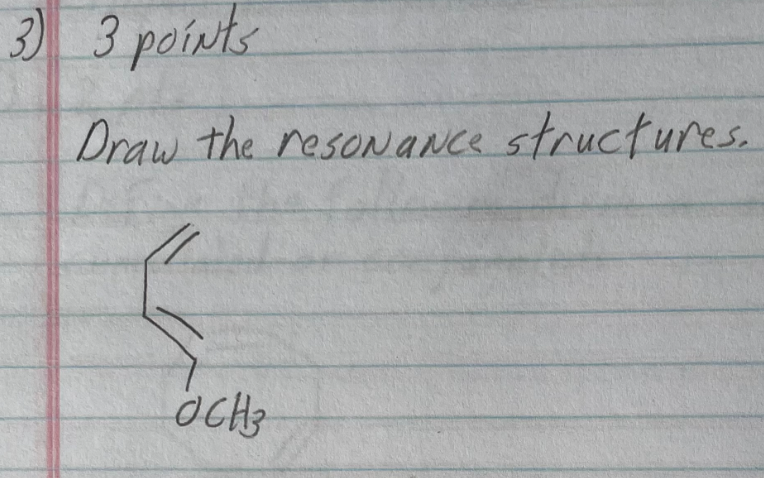 3) 3 points
Draw the resonance structures.
OCH3